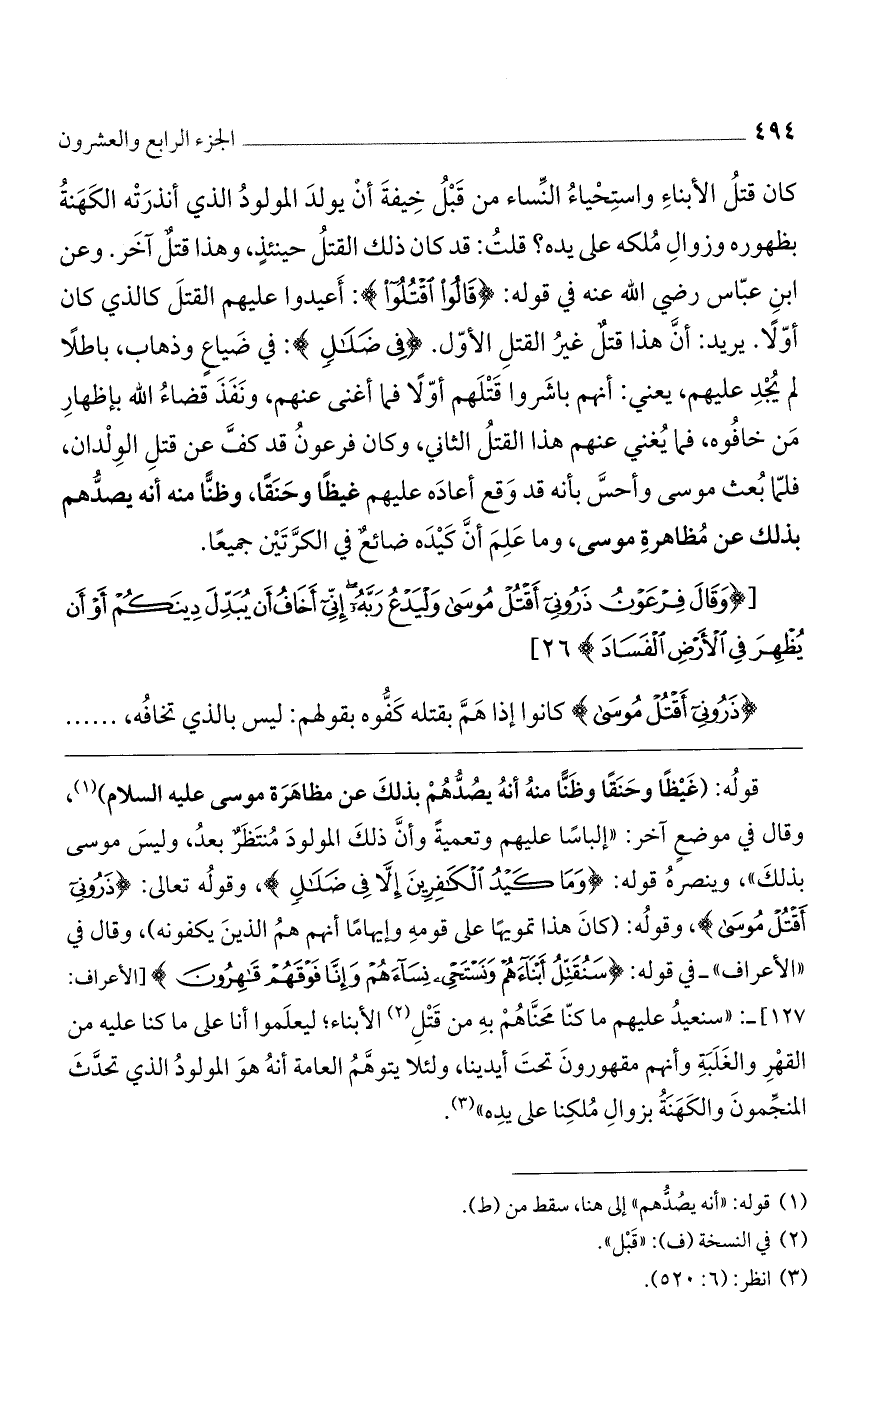 ٤٩٤ الجزء الرابع والعشرون
كان قتلُ الأبناءِ واستِحْياءُ النِّساء من قَبْلُ خِيفةَ أنْ يولدَ المولودُ الذي أنذرَتْه الكَهَنةُ
بظهوره وزوالِ مُلكه على يده؟ قلتُ: قد كان ذلك القتلُ حينئذٍ، وهذا قتلٌ آخَر. وعن
ابنِ عبّاس رضي الله عنه في قوله: ﴿قَالُوا۟ ٱقْتُلُوٓا۟﴾: أَعيدوا عليهم القتلَ كالذي كان
أوّلًا. يريد: أنَّ هذا قتلٌ غيرُ القتلِ الأوّل. ﴿فِى ضَلَـٰلٍ﴾: في ضَياعٍ وذهاب، باطلًا
لم يُجْدِ عليهم، يعني: أنهم باشَروا قَتْلَهم أوّلًا فما أغنى عنهم، ونَفَذَ قضاءُ الله بإظهارِ
مَن خافُوه، فما يُغني عنهم هذا القتلُ الثاني، وكان فرعونُ قد كفَّ عن قتلِ الوِلْدان،
فلمّا بُعث موسى وأحسَّ بأنه قد وَقع أعادَه عليهم غيظًا وحَنَقًا، وظنًّا منه أنه يصدُّهم
بذلك عن مُظاهرةِ موسى، وما عَلِمَ أنَّ كَيْدَه ضائعٌ في الكرَّتَيْن جميعًا.
[﴿وَقَالَ فِرْعَوْنُ ذَرُونِىٓ أَقْتُلْ مُوسَىٰ وَلْيَدْعُ رَبَّهُۥٓ ۖ إِنِّىٓ أَخَافُ أَن يُبَدِّلَ دِينَكُمْ أَوْ أَن
يُظْهِرَ فِى ٱلْأَرْضِ ٱلْفَسَادَ﴾ ٢٦]
﴿ذَرُونِىٓ أَقْتُلْ مُوسَىٰ﴾ كانوا إذا هَمَّ بقتله كَفُّوه بقولهم: ليس بالذي تخافُه، ......
قولُه: (غَيْظًا وحَنَقًا وظَنًّا منهُ أنهُ يصُدُّهُمْ بذلكَ عن مظاهَرَة موسى عليه السلام)(١)،
وقال في موضعٍ آخر: «إلباسًا عليهم وتعميةً وأنَّ ذلكَ المولودَ مُنتَظَرٌ بعدُ، وليسَ موسى
بذلكَ»، وينصرهُ قوله: ﴿وَمَا كَيْدُ ٱلْكَـٰفِرِينَ إِلَّا فِى ضَلَـٰلٍ﴾، وقولُه تعالى: ﴿ذَرُونِىٓ
أَقْتُلْ مُوسَىٰ﴾، وقولُه: (كانَ هذا تمويهًا على قومهِ وإيهامًا أنهم همُ الذينَ يكفونه)، وقال في
«الأعراف» ـ في قوله: ﴿سَنُقَتِّلُ أَبْنَآءَهُمْ وَنَسْتَحْىِۦ نِسَآءَهُمْ وَإِنَّا فَوْقَهُمْ قَـٰهِرُونَ﴾ [الأعراف:
١٢٧] ـ: «سنعيدُ عليهم ما كنّا محَنَّاهُمْ بهِ من قَتْلِ(٢) الأبناء؛ ليعلَموا أنا على ما كنا عليه من
القهْرِ والغَلَبَةِ وأنهم مقهورونَ تحتَ أيدينا، ولئلا يتوهَّمُ العامة أنهُ هوَ المولودُ الذي تحدَّثَ
المنجِّمونَ والكَهَنَةُ بزوالِ مُلكِنا على يدِه»(٣).
(١) قوله: «أنه يصُدُّهم» إلى هنا، سقط من (ط).
(٢) في النسخة (ف): «قَبْل».
(٣) انظر: (٦: ٥٢٠).